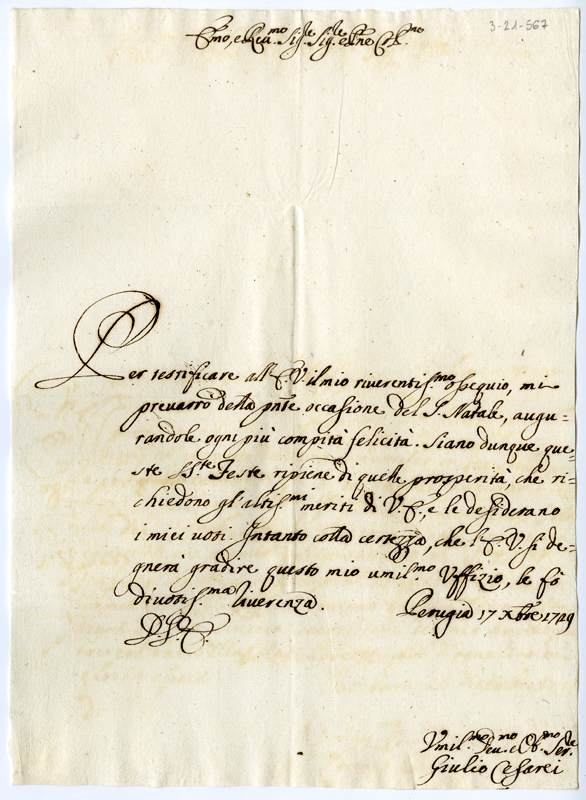 3-21-567
Emo, e Rea.mo Sig.re Sig.re e Pne Col.mo
Per testificare all'E.V. il mio riverentis.mo ossequio, mi
prevarrò della pnte occasione del S. Natale, augu=
randole ogni più compita felicità. Siano dunque que=
ste S.ste Feste ripiene di quelle prosperità, che ri=
chiedono gl'altis.mi meriti di V.E., e le desiderano
i miei voti. Intanto colla certezza, che l'E.V. si de=
gnerà gradire questo mio umil.mo Uffizio, le fò
divotis.ma Riverenza. Perugia 17 Xbre 1749
Vmil.mo Deu.mo e Ob.mo Ser.re
Giulio Cesarei